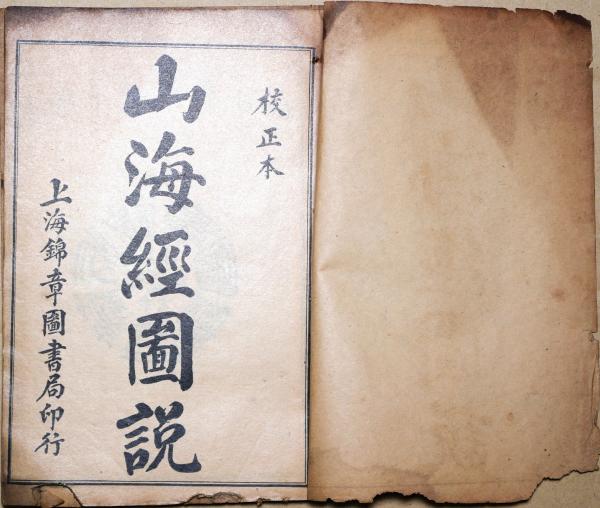 校正本
山海經圖說
上海錦章圖書局印行